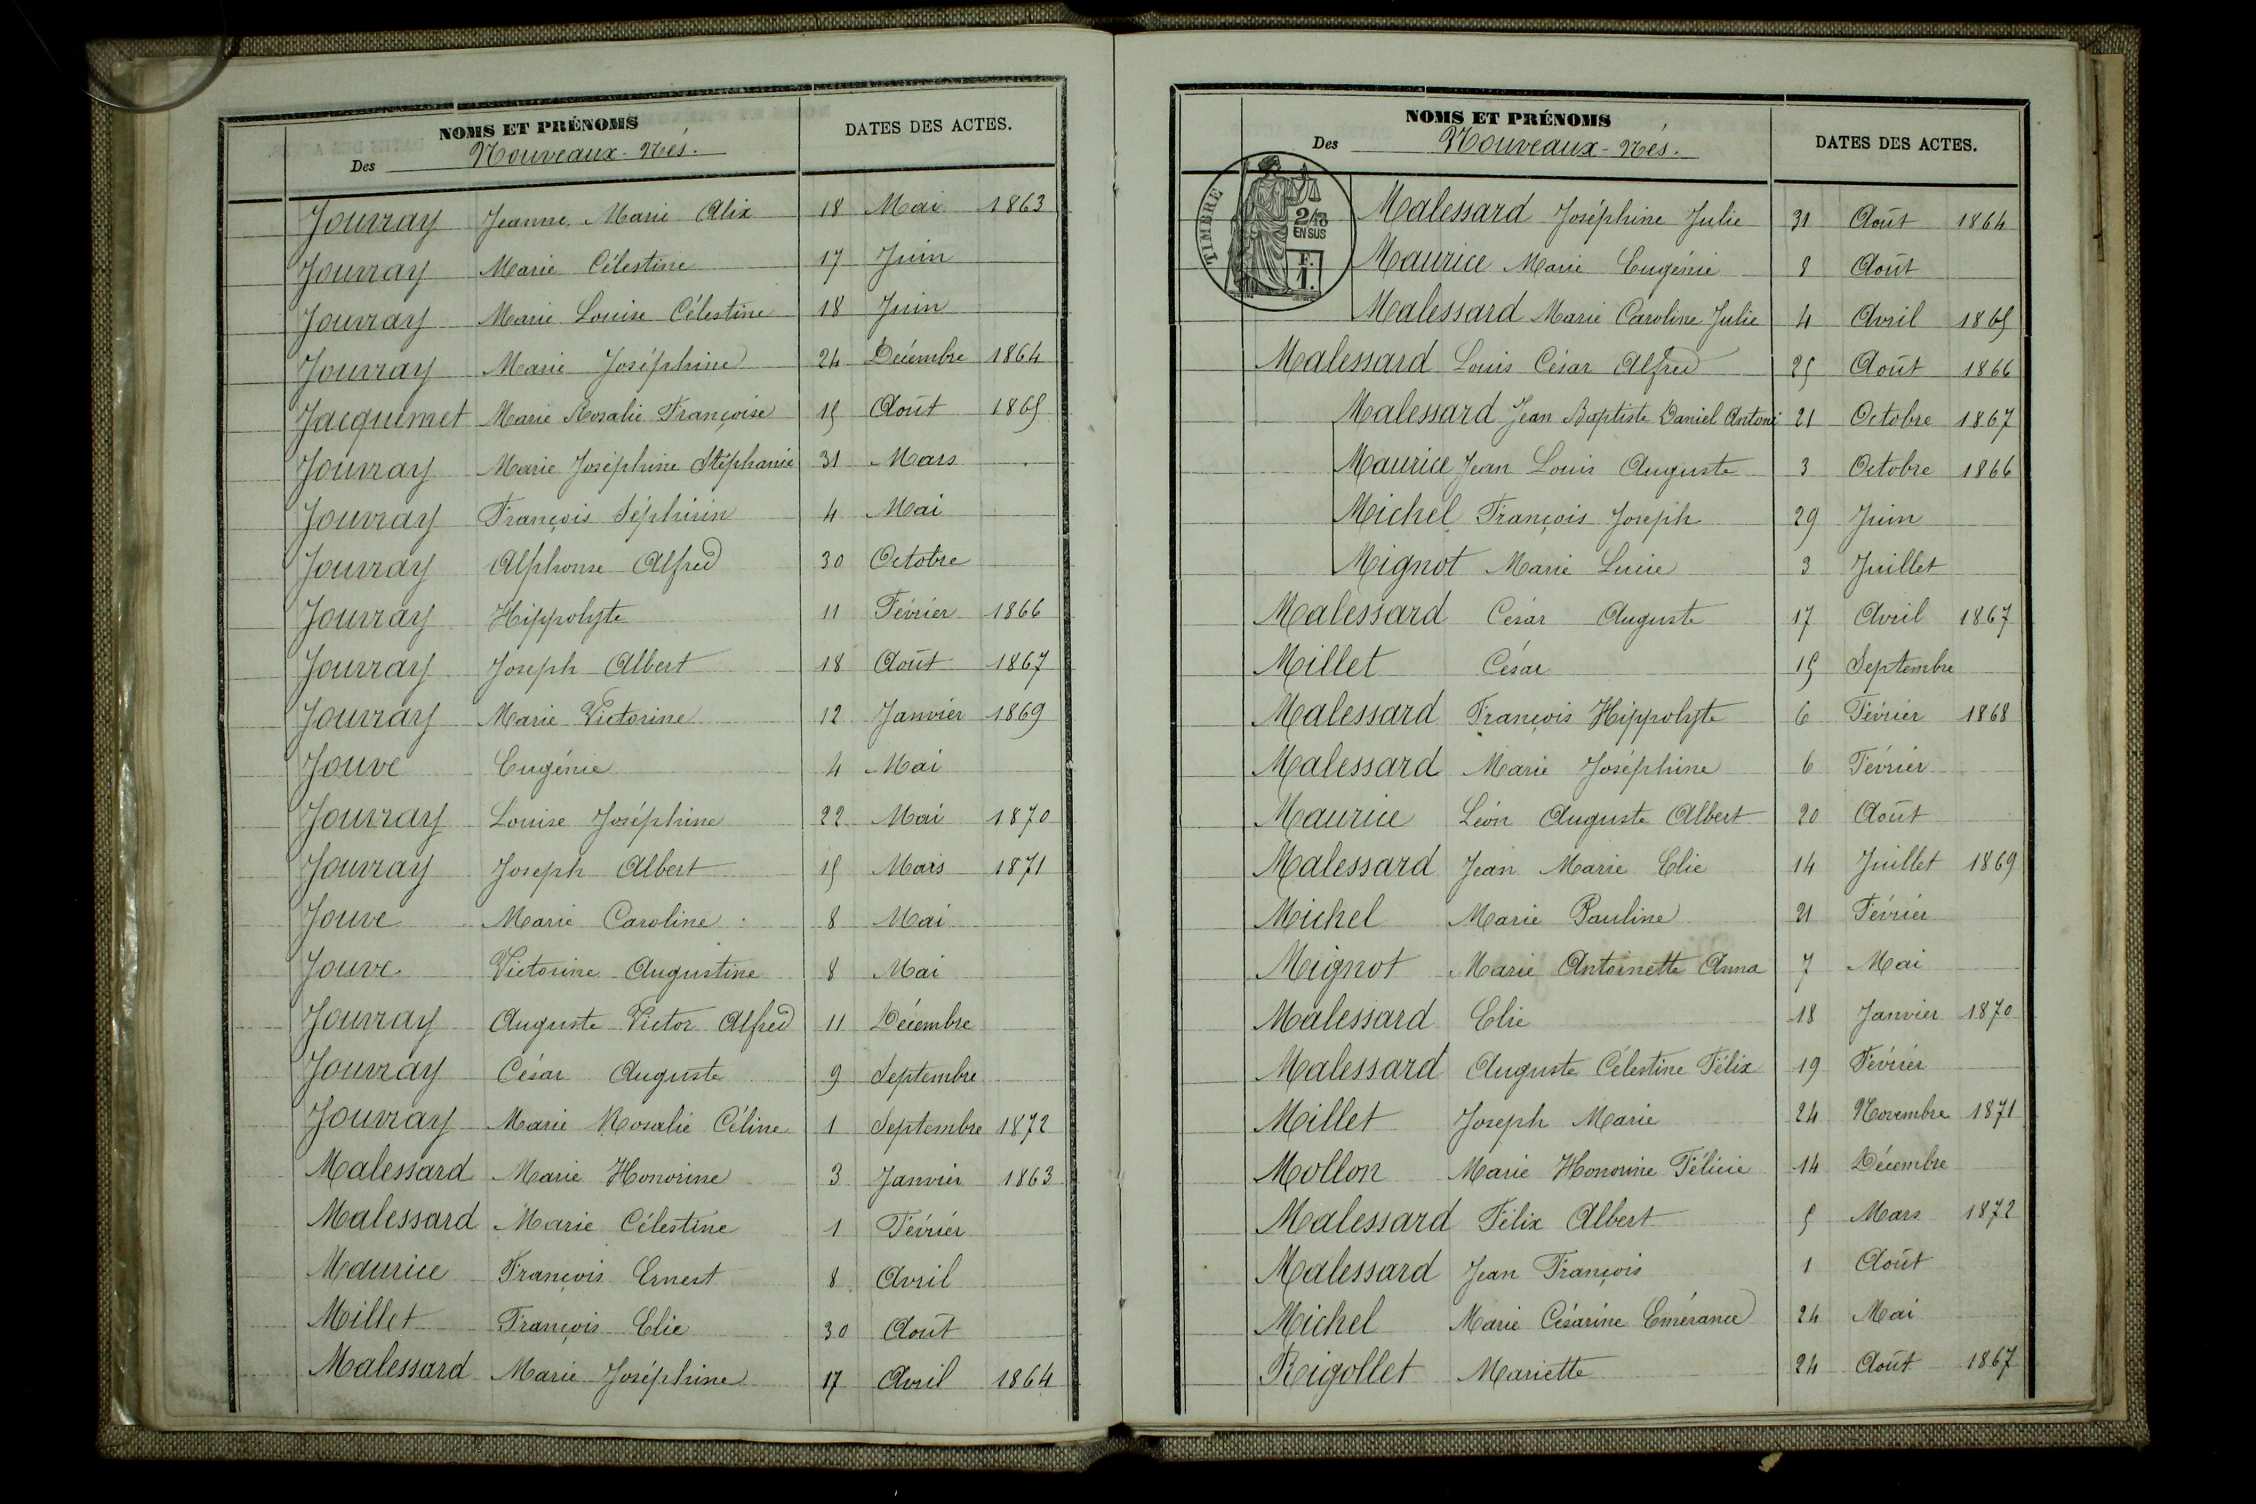 NOMS ET PRÉNOMS
DATES DES ACTES.
Des Nouveaux-Nés.
Jouvray Jeanne Marie Alix 18 Mai 1863
Jouvray Marie Célestine 17 Juin
Jouvray Marie Louise Célestine 18 Juin
Jouvray Marie Joséphine 24 Décembre 1864
Jacquemet Marie Rosalie Françoise 15 Août 1865
Jouvray Marie Joséphine Stéphanie 31 Mars
Jouvray François Séphirin 4 Mai
Jouvray Alphonse Alfred 30 Octobre
Jouvray Hippolyte 11 Février 1866
Jouvray Joseph Albert 18 Août 1867
Jouvray Marie Victorine 12 Janvier 1869
Jouve Eugénie 4 Mai
Jouvray Louise Joséphine 22 Mai 1870
Jouvray Joseph Albert 15 Mars 1871
Jouve Marie Caroline 8 Mai
Jouve Victorine Augustine 8 Mai
Jouvray Auguste Victor Alfred 11 Décembre
Jouvray César Auguste 9 Septembre
Jouvray Marie Rosalie Céline 1 Septembre 1872
Malessard Marie Honorine 3 Janvier 1863
Malessard Marie Célestine 1 Février
Maurice François Ernest 8 Avril
Millet François Elie 30 Août
Malessard Marie Joséphine 17 Avril 1864
NOMS ET PRÉNOMS
DATES DES ACTES.
Des Nouveaux-Nés.
TIMBRE
2/10
EN SUS
F.
1.
Malessard Joséphine Julie 31 Août 1864
Maurice Marie Eugénie 8 Août
Malessard Marie Caroline Julie 4 Avril 1865
Malessard Louis César Alfred 25 Août 1866
Malessard Jean Baptiste Daniel Antoni 21 Octobre 1867
Maurice Jean Louis Auguste 3 Octobre 1866
Michel François Joseph 29 Juin
Mignot Marie Lucie 3 Juillet
Malessard César Auguste 17 Avril 1867
Millet César 15 Septembre
Malessard François Hippolyte 6 Février 1868
Malessard Marie Joséphine 6 Février
Maurice Léon Auguste Albert 20 Août
Malessard Jean Marie Elie 14 Juillet 1869
Michel Marie Pauline 21 Février
Mignot Marie Antoinette Anna 7 Mai
Malessard Elie 18 Janvier 1870
Malessard Auguste Célestine Félix 19 Février
Millet Joseph Marie 24 Novembre 1871
Mollon Marie Honorine Félicie 14 Décembre
Malessard Félix Albert 5 Mars 1872
Malessard Jean François 1 Août
Michel Marie Césarine Emérance 24 Mai
Rigollet Mariette 24 Août 1867